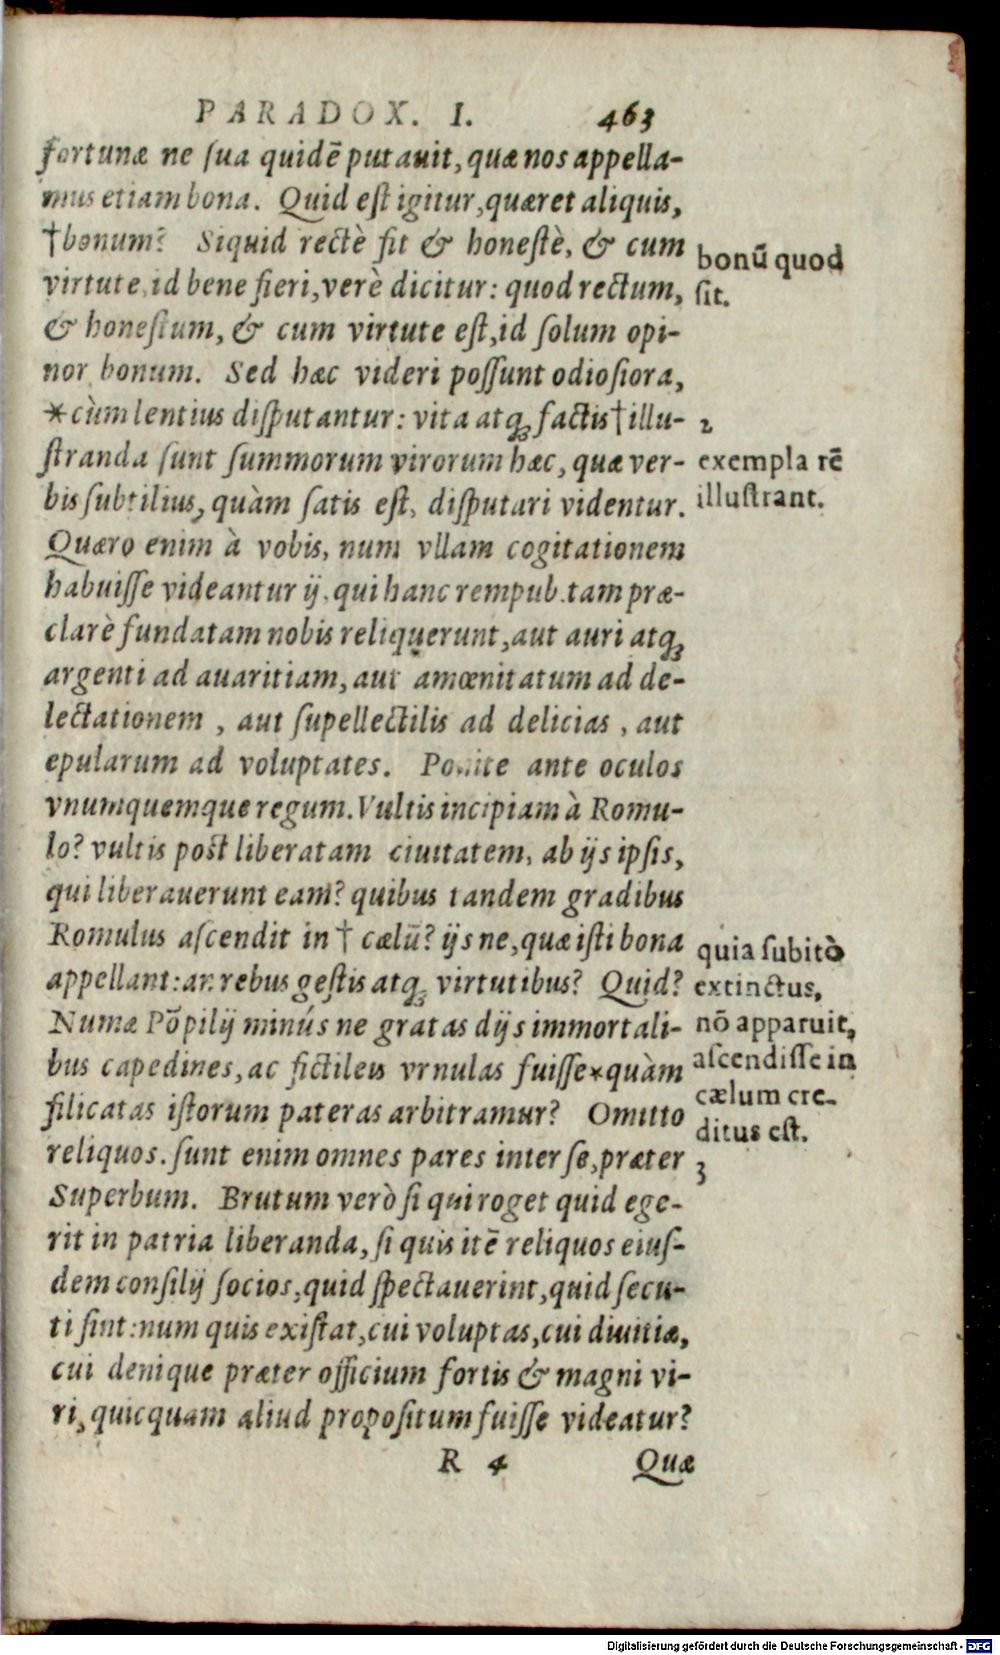 PARADOX. I. 463
fortunæ ne ſua quidẽ putauit, quæ nos appella-
mus etiam bona. Quid eſt igitur, quæret aliquis,
†bonum? Siquid rectè fit & honeſtè, & cum
virtute, id bene fieri, verè dicitur: quod rectum,
& honeſtum, & cum virtute eſt, id ſolum opi-
nor bonum. Sed hæc videri poſſunt odioſiora,
*cùm lentius diſputantur: vita atq; factis †illu-
ſtranda ſunt ſummorum virorum hæc, quæ ver-
bis ſubtilius, quàm ſatis eſt, diſputari videntur.
Quæro enim à vobis, num vllam cogitationem
habuiſſe videantur ij, qui hanc rempub. tam præ-
clarè fundatam nobis reliquerunt, aut auri atq;
argenti ad auaritiam, aut amœnitatum ad de-
lectationem, aut ſupellectilis ad delicias, aut
epularum ad voluptates. Ponite ante oculos
vnumquemque regum. Vultis incipiam à Romu-
lo? vultis poſt liberatam ciuitatem, ab ijs ipſis,
qui liberauerunt eam? quibus tandem gradibus
Romulus aſcendit in † cælũ? ijs ne, quæ iſti bona
appellant: an rebus geſtis atq; virtutibus? Quid?
Numæ Põpilij minús ne gratas dijs immortali-
bus capedines, ac fictileis vrnulas fuiſſe *quàm
filicatas iſtorum pateras arbitramur? Omitto
reliquos. ſunt enim omnes pares inter ſe, præter
Superbum. Brutum verò ſi qui roget quid ege-
rit in patria liberanda, ſi quis itẽ reliquos eiuſ-
dem conſilij ſocios, quid ſpectauerint, quid ſecu-
ti ſint: num quis exiſtat, cui voluptas, cui diuitiæ,
cui denique præter officium fortis & magni vi-
ri, quicquam aliud propoſitum fuiſſe videatur?
R 4 Quæ
bonũ quod
ſit.
2
exempla rẽ
illuſtrant.
quia ſubitò
extinctus,
nõ apparuit,
aſcendiſſe in
cælum cre-
ditus eſt.
3
Digitalisierung gefördert durch die Deutsche Forschungsgemeinschaft - DFG